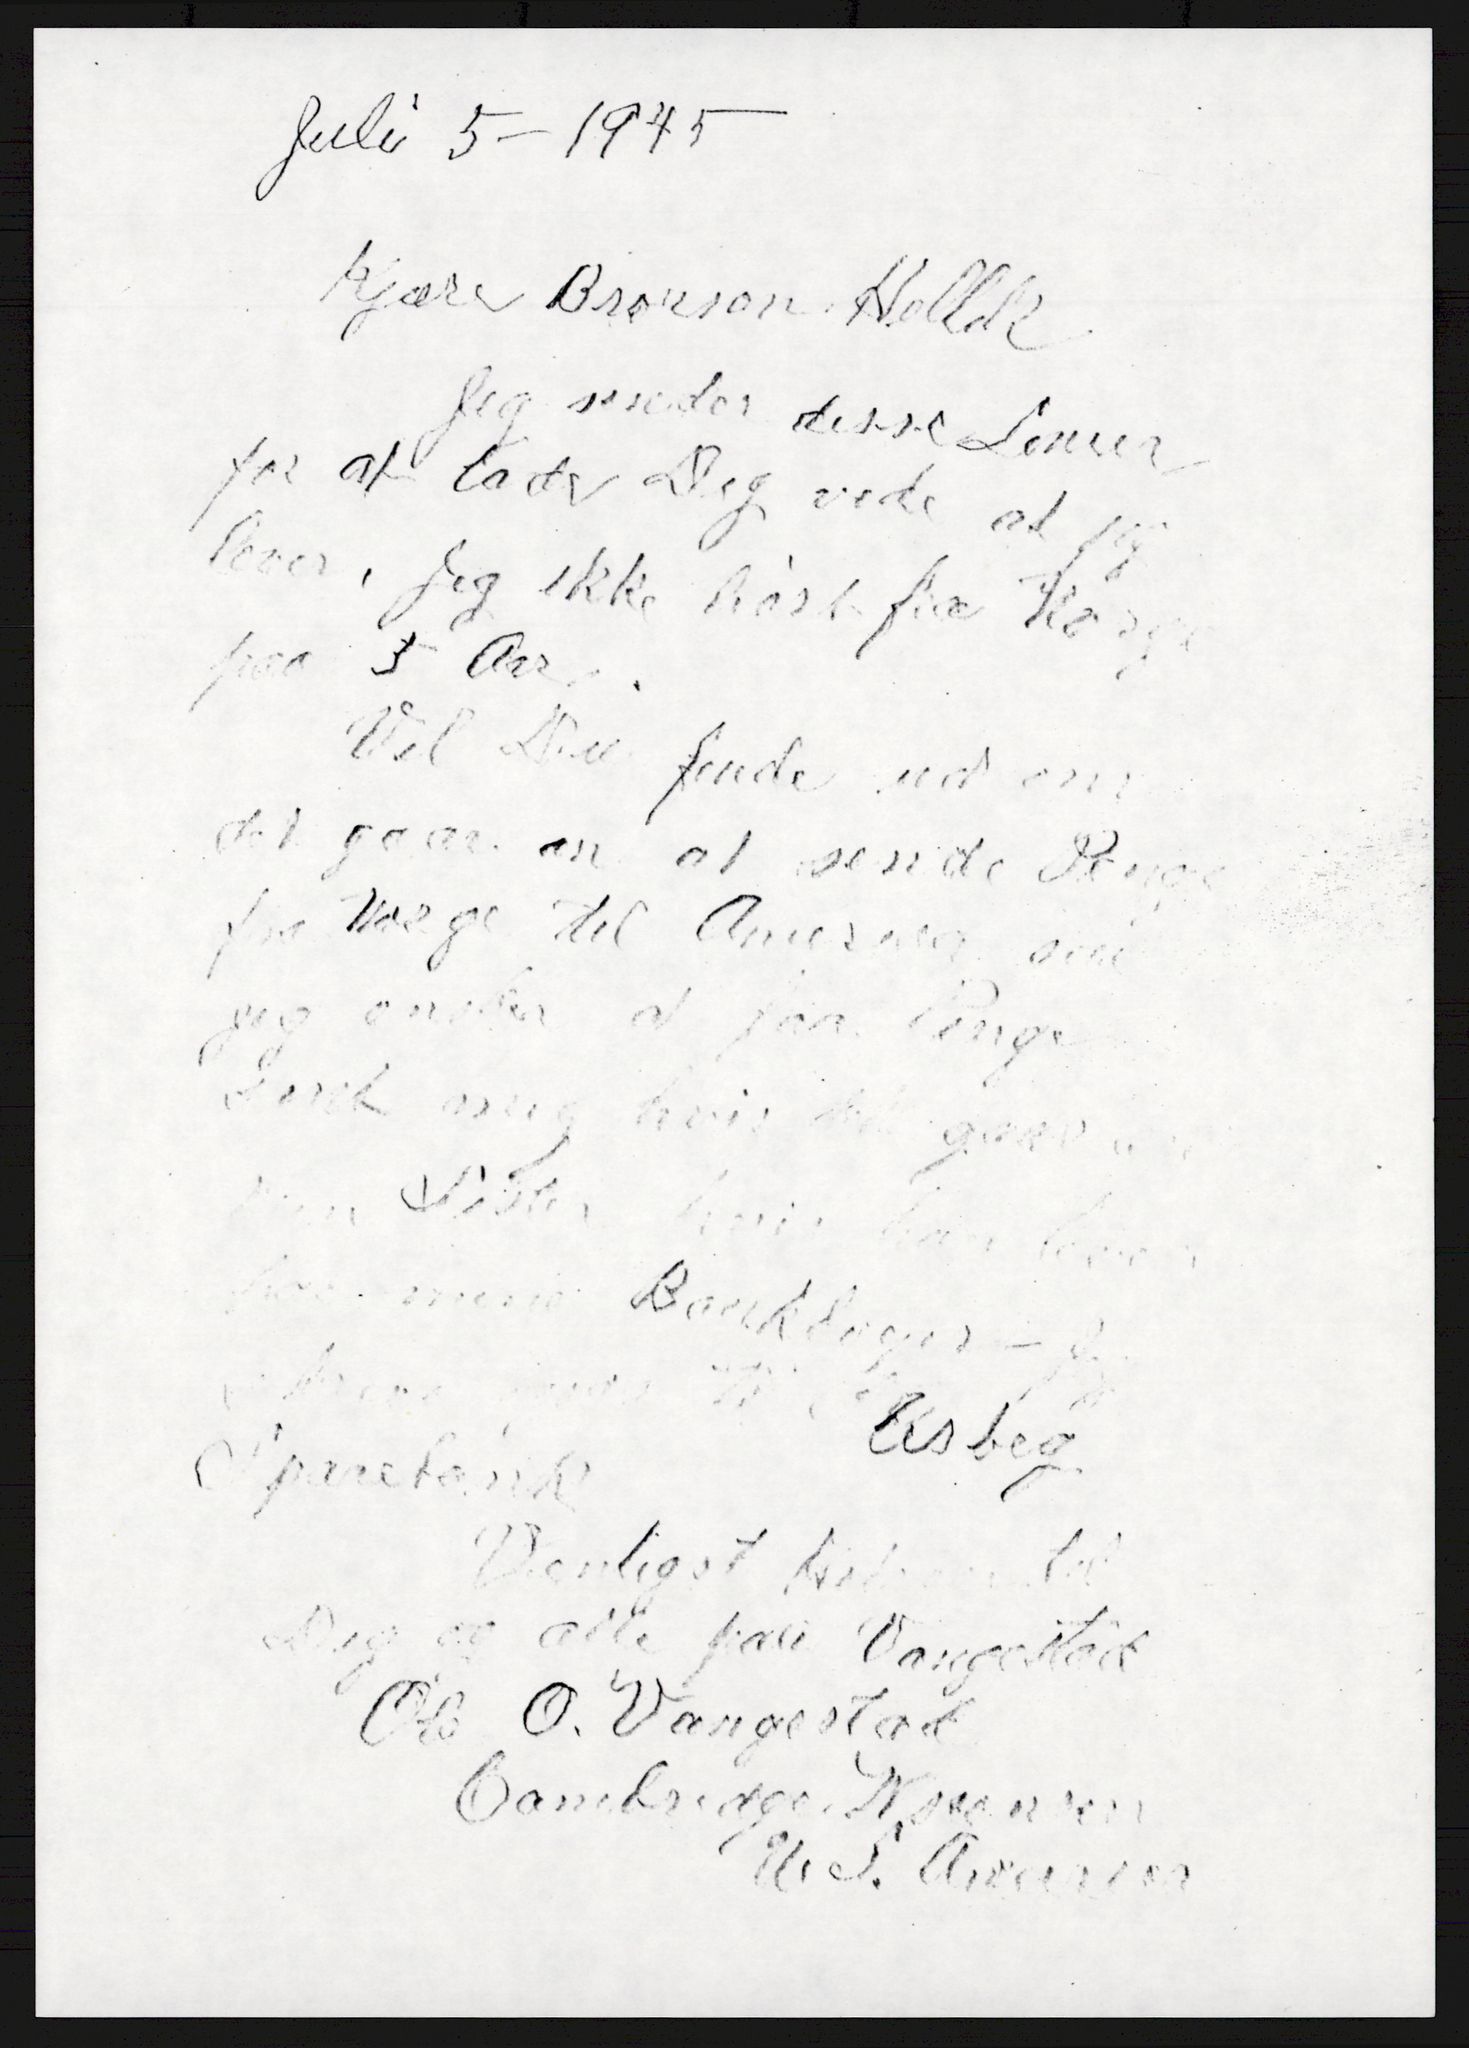 Juli 5 – 1945
Kjære Brorson Hellek
Jeg sender disse Linier
for at lade Dig vide at jeg
lever, jeg ikke hørt fra Norge
paa 5 Aar.
Vil Du finde ud om
det gaar an at sende Penge
fra Norge til America
jeg ønsker at faa Penge
hvis det gaar an
Søster hvis han lever
mine Bankbøger – Jeg
Sparebank
Venligst Hilsen til
Dig og alle paa Vangestad
Ole O. Vangestad
Cambridge
U.S. America